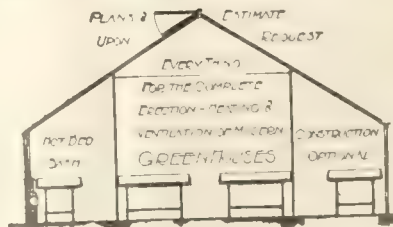 PLANS & ESTIMATE
UPON REQUEST
EVERYTHING
FOR THE COMPLETE
ERECTION-HEATING &
VENTILATION OF MODERN
GREENHOUSES
HOT BED
SASH
CONSTRUCTION
OPTIONAL